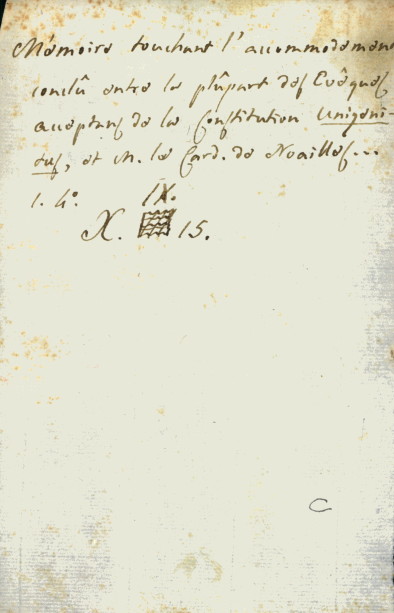 Mémoire touchant l'accommodement
conclû entre la plûpart des Evêques
acceptans de la Constitution Unigeni-
tus, et M. le Card. de Noailles...
1. 4°. IX.
X. 15.
C